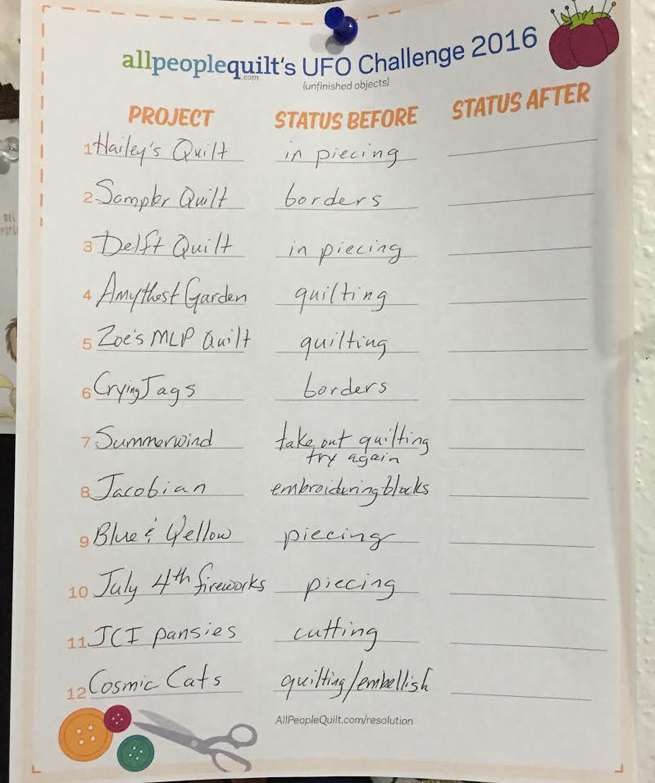 allpeoplequilt's UFO Challenge 2016
.com
(unfinished objects)
PROJECT STATUS BEFORE STATUS AFTER
1 Hailey's Quilt in piecing
2 Sampler Quilt borders
3 Delft Quilt in piecing
4 Amythest Garden quilting
5 Zoe's MLP Quilt quilting
6 Crying Jags borders
7 Summerwind take out quilting
try again
8 Jacobian embroidering blocks
9 Blue & Yellow piecing
10 July 4th fireworks piecing
11 JCI pansies cutting
12 Cosmic Cats quilting/embellish
AllPeopleQuilt.com/resolution